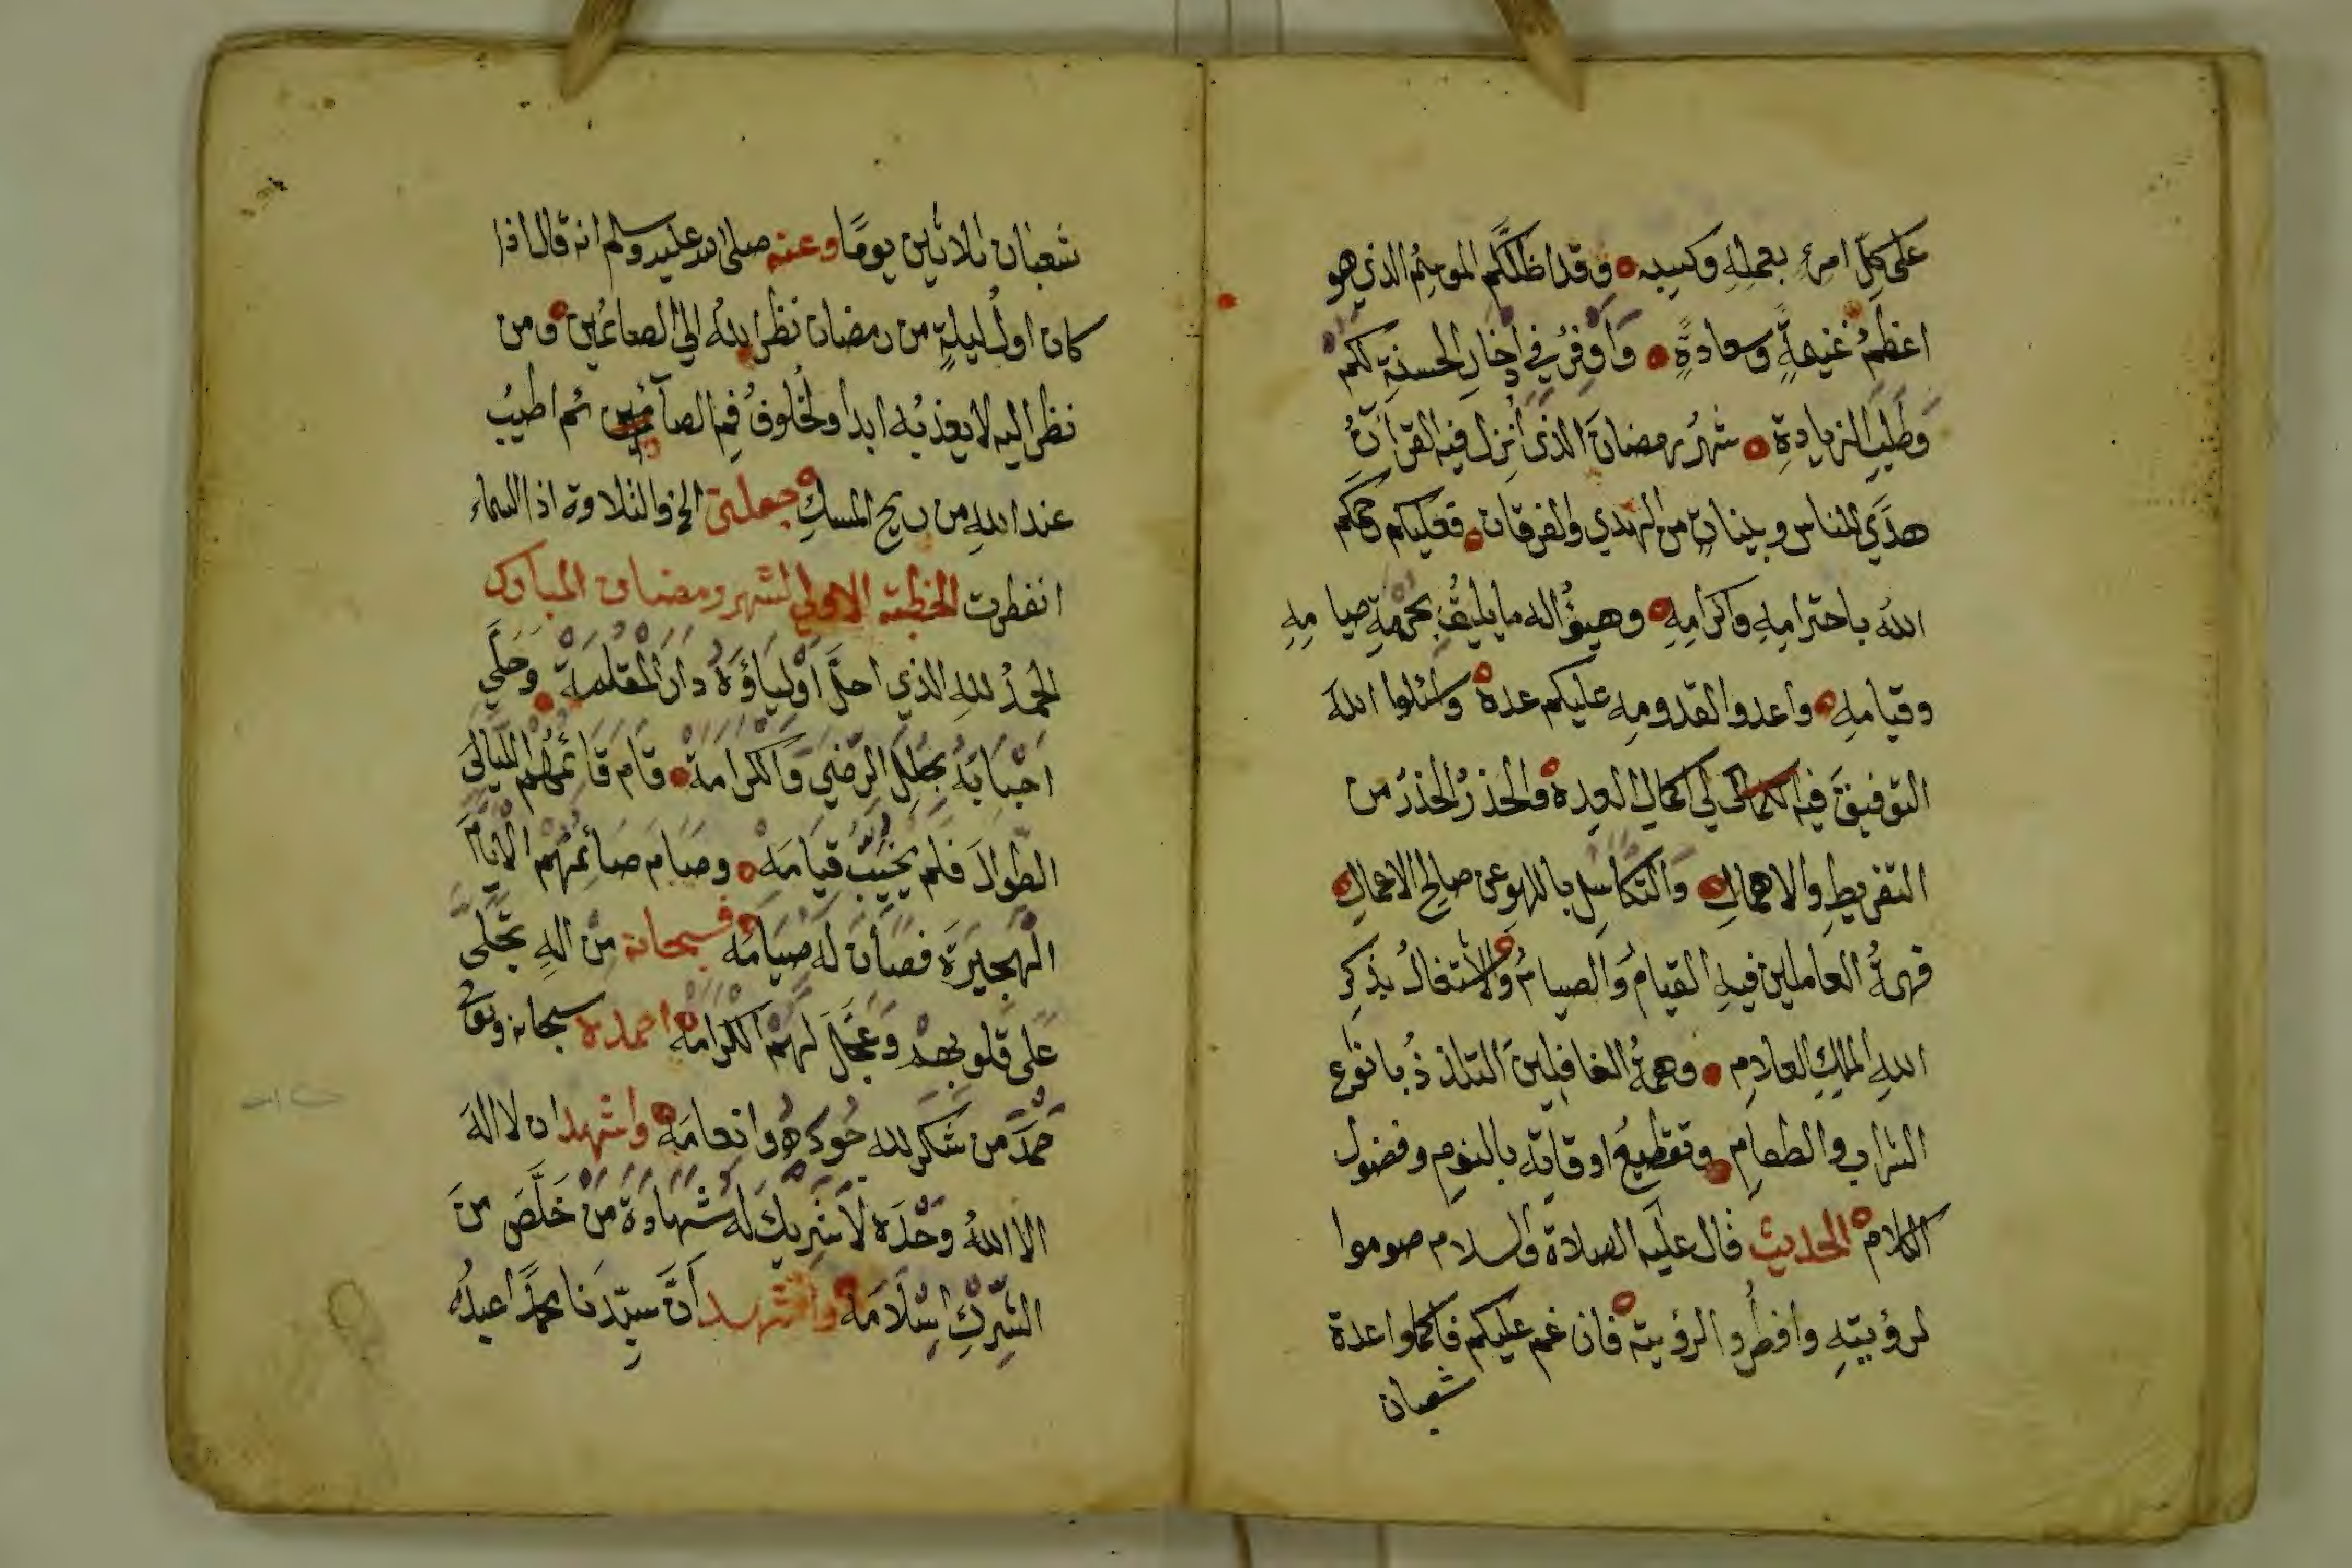 على كل امرئ بعمله وكسبه وقد اظلكم الموسم الذي هو
اعظم غنيمةٍ وسعادةٍ وأوفر في إدخار الحسنة لكم
وطلب الزيادة شهر رمضان الذي أنزل فيه القرآن
هدي للناس وبينات من الهدي والفرقان فعليكم رحمكم
الله باحترامه واكرامه وهيؤا له ما يليق بحرمة صيامه
وقيامه واعدوا القدومه عليكم عدة واسئلوا الله
التوفيق فيه لكي اكمال العدة والحذر الحذر من
التفريط والاهمال والتكاسل باللهو عن صالح الاعمال
فهمة العاملين فيه القيام والصيام والاشتغال بذكر
الله الملك العلام وهمة الغافلين التلذذ بانوع
الشراب والطعام وتقطيع اوقاته بالنوم وفضول
الكلام الحديث قال عليه الصلاة والسلام صوموا
لرؤيته وافطروا لرؤيته فان غم عليكم فاكملوا عدة
شعبان
شعبان ثلاثين يومًا وعنه صلى الله عليه وسلم انه قال اذا
كان اول ليلةٍ من رمضان نظر الله الي الصائمين ومن
نظر اليه لا يعذبه ابدا ولخلوف فم الصائم اطيب
عند الله من ريح المسك جعلني الخ والتلاوة اذا السماء
انفطرت الخطبة الاولي لشهر رمضان المبارك
الحمد لله الذي احلَّ أولياؤه دار المقامة وحلي
احبابه بحلل الرضي والكرامة قام قائمهم الليالي
الطوال فلم يخيب قيامه وصام صائمهم الأيام
الهجيرة فصان له صيامه فسبحانه من اله تجلى
على قلوبهم وعجل لهم الكرامة احمده سبحانه وتعالى
حمد من شكر لله جوده وانعامه واشهد ان لا اله
الا الله وحده لا شريك له شهادة من خلص من
الشرك اسلامه واشهد أن سيدنا محمدًا عبده